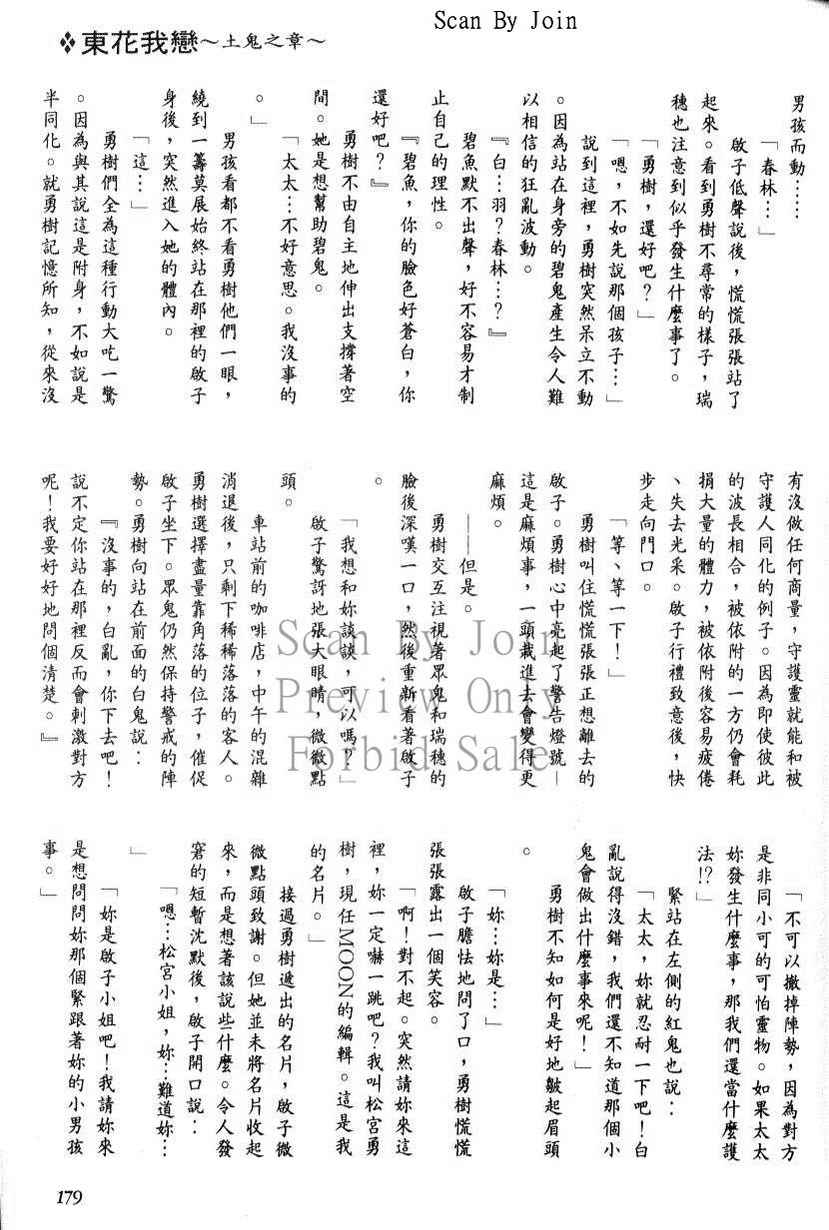 Scan By Join
❖東花我戀～土鬼之章～
男孩而動……
「春林…」
啟子低聲說後，慌慌張張站了
起來。看到勇樹不尋常的樣子，瑞
穗也注意到似乎發生什麼事了。
「勇樹，還好吧？」
「嗯，不如先說那個孩子…」
說到這裡，勇樹突然呆立不動
。因為站在身旁的碧鬼產生令人難
以相信的狂亂波動。
『白…羽？春林…？』
碧魚默不出聲，好不容易才制
止自己的理性。
『碧魚，你的臉色好蒼白，你
還好吧？』
勇樹不由自主地伸出支撐著空
間。她是想幫助碧鬼。
「太太…不好意思。我沒事的
。」
男孩看都不看勇樹他們一眼，
繞到一籌莫展始終站在那裡的啟子
身後，突然進入她的體內。
「這…」
勇樹們全為這種行動大吃一驚
。因為與其說這是附身，不如說是
半同化。就勇樹記憶所知，從來沒
有沒做任何商量，守護靈就能和被
守護人同化的例子。因為即使彼此
的波長相合，被依附的一方仍會耗
損大量的體力，被依附後容易疲倦
、失去光采。啟子行禮致意後，快
步走向門口。
「等、等一下！」
勇樹叫住慌慌張張正想離去的
啟子。勇樹心中亮起了警告燈號—
這是麻煩事，一頭栽進去會變得更
麻煩。
——但是。
勇樹交互注視著眾鬼和瑞穗的
臉後深嘆一口，然後重新看著啟子
。
「我想和妳談談，可以嗎？」
啟子驚訝地張大眼睛，微微點
頭。
車站前的咖啡店，中午的混雜
消退後，只剩下稀稀落落的客人。
勇樹選擇盡量靠角落的位子，催促
啟子坐下。眾鬼仍然保持警戒的陣
勢。勇樹向站在前面的白鬼說：
『沒事的，白亂，你下去吧！
說不定你站在那裡反而會刺激對方
呢！我要好好地問個清楚。』
「不可以撤掉陣勢，因為對方
是非同小可的可怕靈物。如果太太
妳發生什麼事，那我們還當什麼護
法!?」
緊站在左側的紅鬼也說：
「太太，妳就忍耐一下吧！白
亂說得沒錯，我們還不知道那個小
鬼會做出什麼事來呢！」
勇樹不知如何是好地皺起眉頭
。
「妳…妳是…」
啟子膽怯地問了口，勇樹慌慌
張張露出一個笑容。
「啊！對不起。突然請妳來這
裡，妳一定嚇一跳吧？我叫松宮勇
樹，現任MOON的編輯。這是我
的名片。」
接過勇樹遞出的名片，啟子微
微點頭致謝。但她並未將名片收起
來，而是想著該說些什麼。令人發
窘的短暫沈默後，啟子開口說：
「嗯…松宮小姐，妳…難道妳…
」
「妳是啟子小姐吧！我請妳來
是想問問妳那個緊跟著妳的小男孩
事。」
Scan By Join
Preview Only
Forbid Sale
179